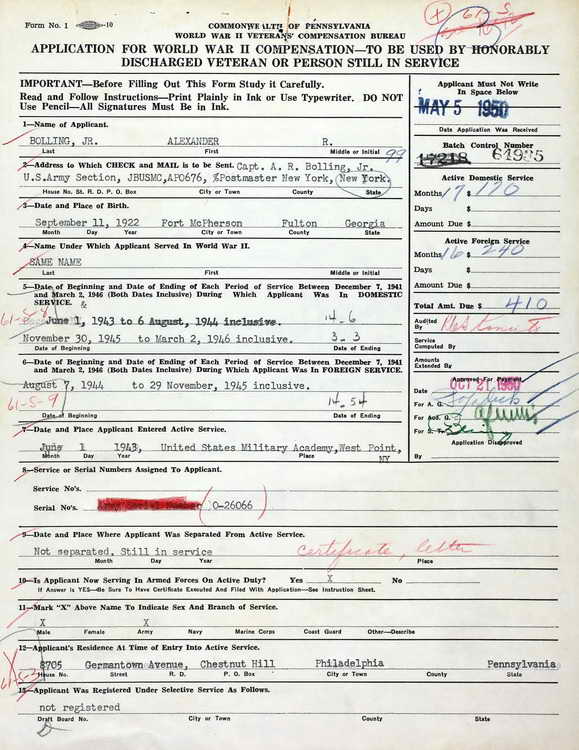 Form No. 1
10
COMMONWEALTH OF PENNSYLVANIA
WORLD WAR II VETERANS' COMPENSATION BUREAU
APPLICATION FOR WORLD WAR II COMPENSATION—TO BE USED BY HONORABLY
DISCHARGED VETERAN OR PERSON STILL IN SERVICE
IMPORTANT—Before Filling Out This Form Study it Carefully.
Read and Follow Instructions—Print Plainly in Ink or Use Typewriter. DO NOT
Use Pencil—All Signatures Must Be in Ink.
1—Name of Applicant.
BOLLING, JR. ALEXANDER R.
Last First Middle or Initial
99
2—Address to Which CHECK and MAIL is to be Sent. Capt. A. R. Bolling, Jr.
U.S.Army Section, JBUSMC,APO676, %Postmaster New York, New York.
House No. St. R. D. P. O. Box City or Town County State
3—Date and Place of Birth.
September 11, 1922 Fort McPherson Fulton Georgia
Month Day Year City or Town County State
4—Name Under Which Applicant Served In World War II.
SAME NAME
Last First Middle or Initial
5—Date of Beginning and Date of Ending of Each Period of Service Between December 7, 1941
and March 2, 1946 (Both Dates Inclusive) During Which Applicant Was In DOMESTIC
SERVICE. &
June 1, 1943 to 6 August, 1944 inclusive. 14-6
November 30, 1945 to March 2, 1946 inclusive. 3-3
Date of Beginning Date of Ending
6—Date of Beginning and Date of Ending of Each Period of Service Between December 7, 1941
and March 2, 1946 (Both Dates Inclusive) During Which Applicant Was In FOREIGN SERVICE.
August 7, 1944 to 29 November, 1945 inclusive.
61-S-9
14-54
Date of Beginning Date of Ending
7—Date and Place Applicant Entered Active Service.
June 1 1943, United States Military Academy,West Point,
NY
Month Day Year Place
Applicant Must Not Write
In Space Below
MAY 5 1950
Date Application Was Received
Batch Control Number
17218 64935
Active Domestic Service
Months 17 $ 170
Days $
Amount Due $
Active Foreign Service
Months 16 $ 240
Days $
Amount Due $
Total Amt. Due $ 410
Audited
By
Service
Computed By
Amounts
Extended By
Approved For Payment
Date OCT 21 1950
For A. G.
For Aud. G.
For S. T.
Application Disapproved
By
8—Service or Serial Numbers Assigned To Applicant.
Service No's.
Serial No's. Army Serial Number 0-26066
9—Date and Place Where Applicant Was Separated From Active Service.
Not separated. Still in service Certificate, letter
Month Day Year Place
10—Is Applicant Now Serving In Armed Forces On Active Duty? Yes X No
If Answer is YES—Be Sure To Have Certificate Executed And Filed With Application—See Instruction Sheet.
11—Mark "X" Above Name To Indicate Sex And Branch of Service.
X X
Male Female Army Navy Marine Corps Coast Guard Other—Describe
12—Applicant's Residence At Time of Entry Into Active Service.
8705 Germantown Avenue, Chestnut Hill Philadelphia Pennsylvania
House No. Street R. D. P. O. Box City or Town County State
13—Applicant Was Registered Under Selective Service As Follows.
not registered
Draft Board No. City or Town County State